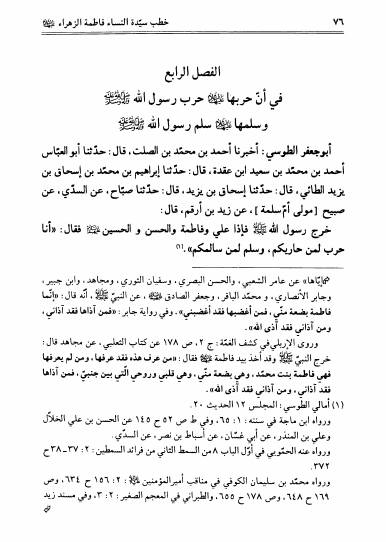 ٧٦ خطب سيّدة النساء فاطمة الزهراء ﷺ
الفصل الرابع
في أنّ حربها ﷺ حرب رسول الله ﷺ
وسلمها ﷺ سلم رسول الله ﷺ
أبوجعفر الطوسي: أخبرنا أحمد بن محمّد بن الصلت، قال: حدّثنا أبوالعبّاس
أحمد بن محمّد بن سعيد ابن عقدة، قال: حدّثنا إبراهيم بن محمّد بن إسحاق بن
يزيد الطائي، قال: حدّثنا إسحاق بن يزيد، قال: حدّثنا صبّاح، عن السدّي، عن
صبيح [مولى أمّ سلمة]، عن زيد بن أرقم، قال:
خرج رسول الله ﷺ فإذا علي وفاطمة والحسن و الحسين ﷺ فقال: «أنا
حرب لمن حاربكم، وسلم لمن سالمكم».(١)
إيّاها» عن عامر الشعبي، والحسن البصري، وسفيان الثوري، ومجاهد، وابن جبير،
وجابر الأنصاري، و محمّد الباقر، وجعفر الصادق ﷺ، عن النبيّ ﷺ، أنّه قال: «إنّما
فاطمة بضعة منّي، فمن أغضبها فقد أغضبني». وفي رواية جابر: «فمن آذاها فقد آذاني،
ومن آذاني فقد آذى الله».
وروى الإربلي في كشف الغمّة: ج ٢، ص ١٧٨ عن كتاب الثعلبي، عن مجاهد قال:
خرج النبيّ ﷺ وقد أخذ بيد فاطمة ﷺ فقال: «من عرف هذه فقد عرفها، ومن لم يعرفها
فهي فاطمة بنت محمّد، وهي بضعة منّي، وهي قلبي وروحي الّتي بين جنبيّ، فمن آذاها
فقد آذاني، ومن آذاني فقد آذى الله».
(١) أمالي الطوسي: المجلس ١٢ الحديث ٢٠.
ورواه ابن ماجة في سننه: ١: ٦٥، وفي ط ص ٥٢ ح ١٤٥ عن الحسن بن علي الخلّال
وعلي بن المنذر، عن أبي غسّان، عن أسباط بن نصر، عن السدّي.
ورواه عنه الحمّويي في أوّل الباب ٨ من السمط الثاني من فرائد السمطين: ٢: ٣٧-٣٨ ح
٣٧٢.
ورواه محمّد بن سليمان الكوفي في مناقب أميرالمؤمنين ﷺ: ٢: ١٥٦ ح ٦٣٤، وص
١٦٩ ح ٦٤٨، وص ١٧٨ ح ٦٥٥، والطبراني في المعجم الصغير: ٢: ٣، وفي مسند زيد